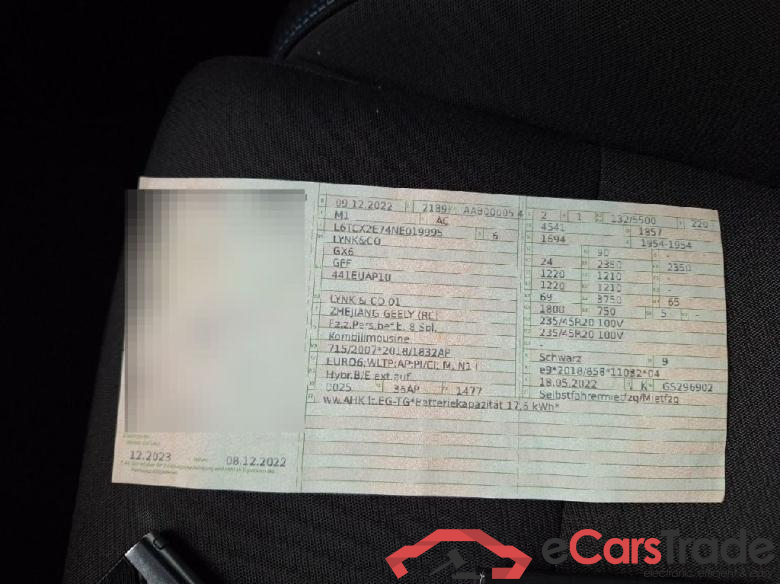 09.12.2022 2189
M1 AC
L6TCX2E74NE019995 6
LYNK&CO
GX6
GFF
441EUAP10
LYNK & CO 01
ZHEJIANG GEELY (RC)
Fz.z.Pers.bef.b. 8 Spl.
Kombilimousine
715/2007*2018/1832AP
EURO6;WLTP;AP;PI/CI; M, N1 I
Hybr.B/E ext.aufl
0025 35AP 1477
ww.AHK lt.EG-TG*Batteriekapazität 17,6 kWh*
2 1 132/5500 220
4541 1857
1694 1954-1954
- 90 -
24 2350 2350
1220 1210 -
1220 1210 -
69 3750 65
1800 750 5 -
235/45R20 100V
235/45R20 100V
-
Schwarz 9
e9*2018/858*11082*04
18.05.2022 K GS296902
Selbstfahrermietfzg/Mietfzg
12.2023 08.12.2022
eCarsTrade